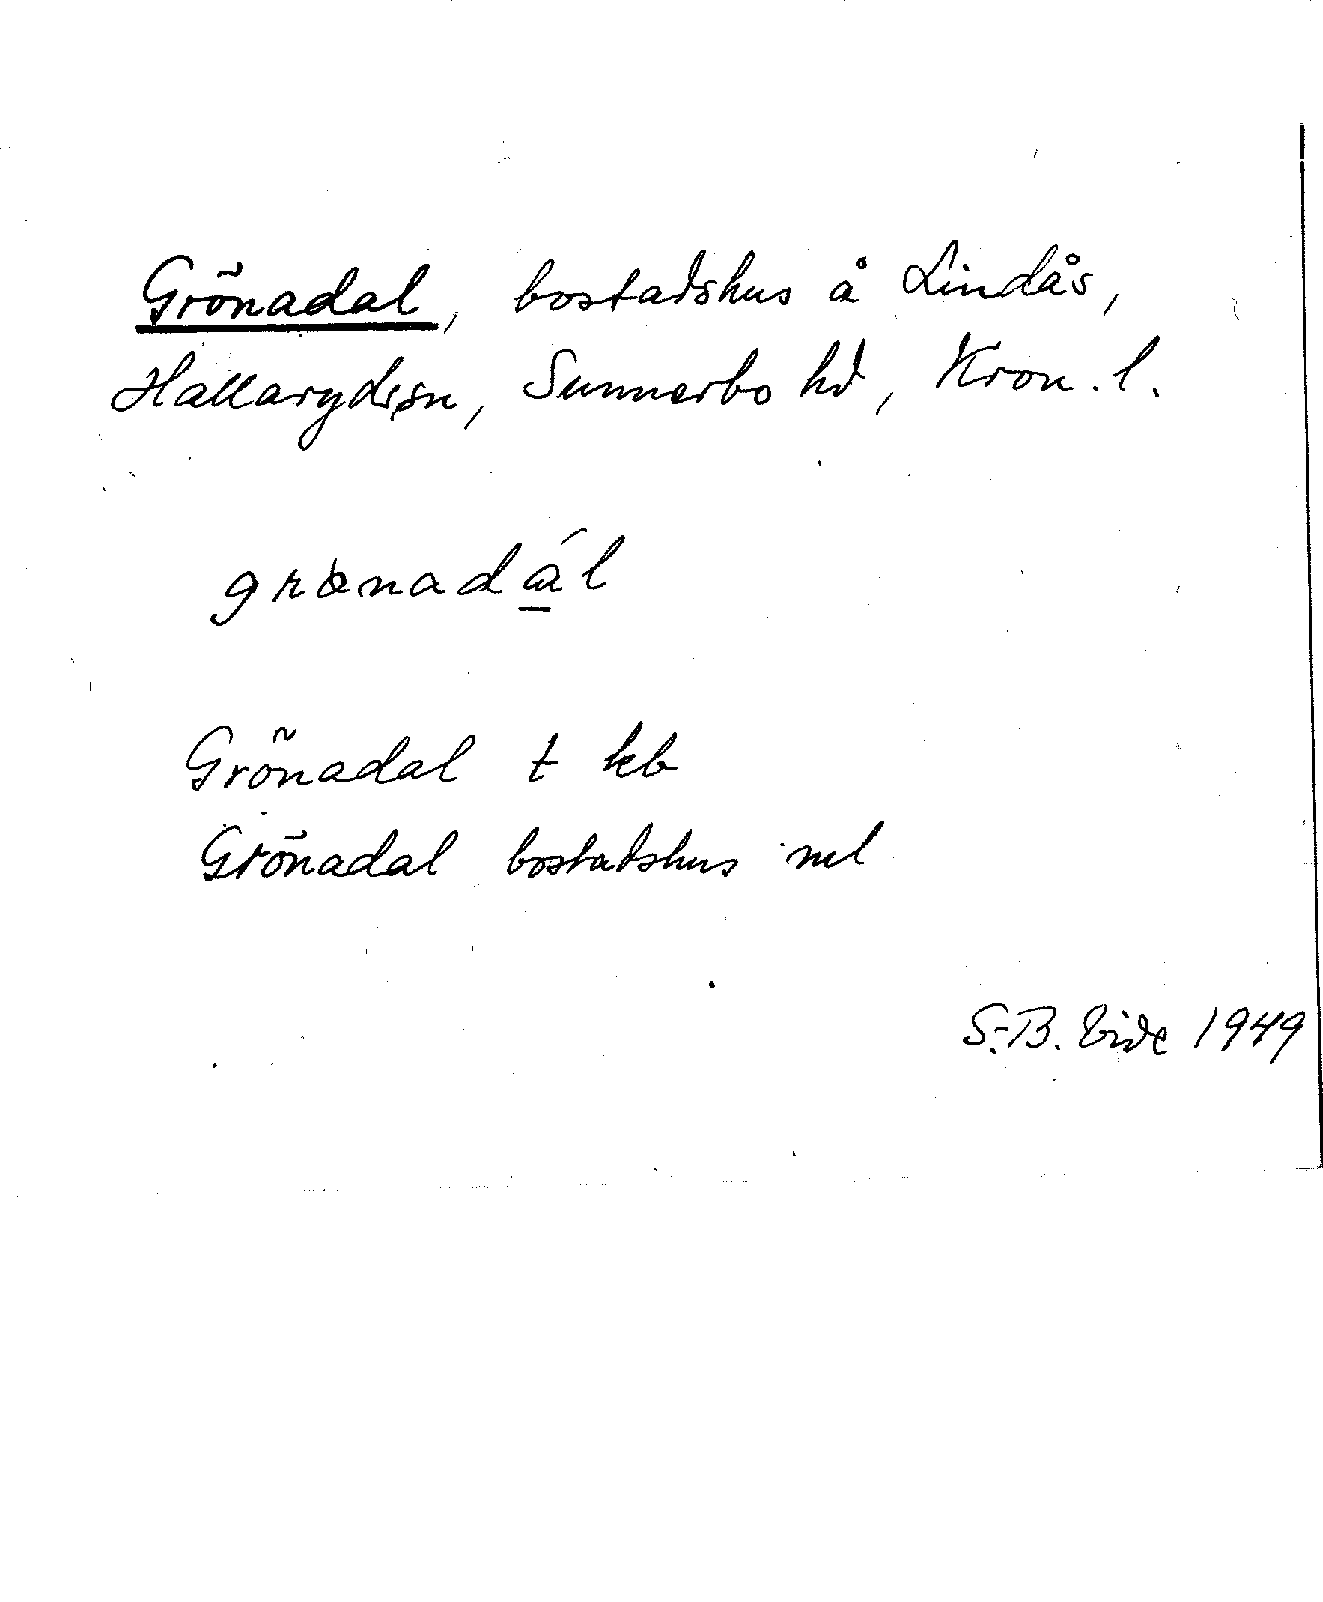 Grönadal, bostadshus å Lindås,
Hallaryds sn, Sunnerbo hd, Kron. l.
grœnadál
Grönadal t kb
Grönadal bostadshus ml
S.-B. Vide 1949